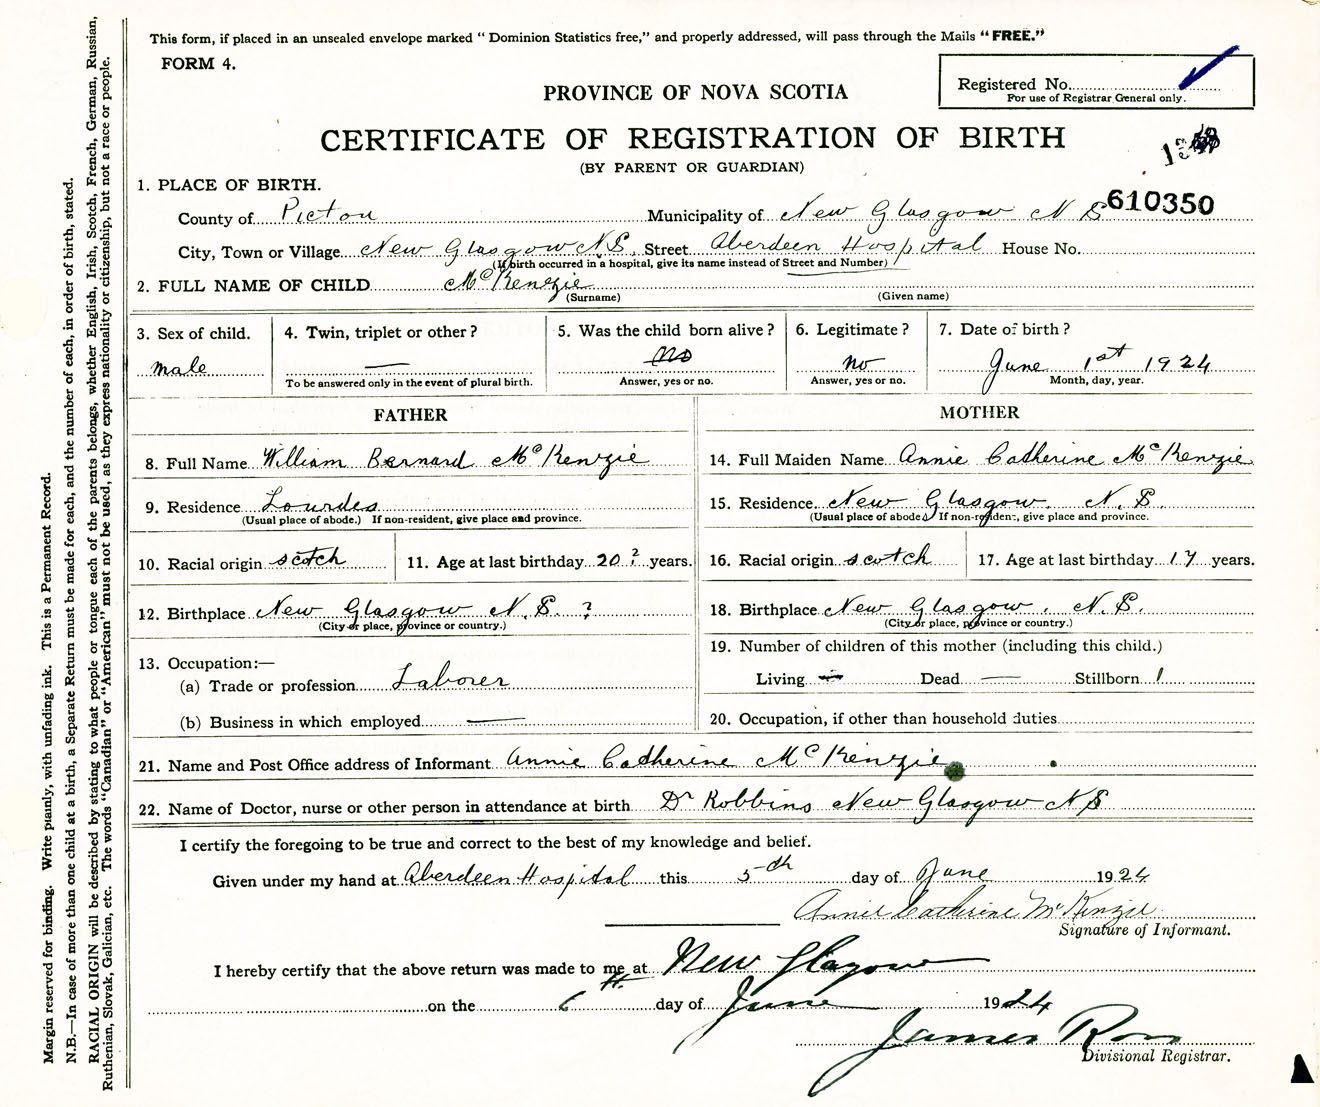 This form, if placed in an unsealed envelope marked " Dominion Statistics free," and properly addressed, will pass through the Mails "FREE."
FORM 4.
Registered No.
For use of Registrar General only.
PROVINCE OF NOVA SCOTIA
CERTIFICATE OF REGISTRATION OF BIRTH
(BY PARENT OR GUARDIAN)
610350
1. PLACE OF BIRTH.
County of Pictou Municipality of New Glasgow N S
City, Town or Village New Glasgow N.S. Street Aberdeen Hospital House No.
(If birth occurred in a hospital, give its name instead of Street and Number)
2. FULL NAME OF CHILD McKenzie
(Surname) (Given name)
3. Sex of child. 4. Twin, triplet or other? 5. Was the child born alive? 6. Legitimate? 7. Date of birth?
male — No no June 1st 1924
To be answered only in the event of plural birth. Answer, yes or no. Answer, yes or no. Month, day, year.
FATHER MOTHER
8. Full Name William Bernard McKenzie
14. Full Maiden Name Annie Catherine McKenzie
9. Residence Lourdes
(Usual place of abode.) If non-resident, give place and province.
15. Residence New Glasgow. N.S.
(Usual place of abode.) If non-resident, give place and province.
10. Racial origin scotch 11. Age at last birthday 20? years.
16. Racial origin scotch 17. Age at last birthday 17 years.
12. Birthplace New Glasgow N.S. ?
(City or place, province or country.)
18. Birthplace New Glasgow. N.S.
(City or place, province or country.)
13. Occupation:—
(a) Trade or profession Laborer
(b) Business in which employed —
19. Number of children of this mother (including this child.)
Living — Dead — Stillborn 1
20. Occupation, if other than household duties
21. Name and Post Office address of Informant Annie Catherine McKenzie
22. Name of Doctor, nurse or other person in attendance at birth Dr Robbins New Glasgow N S
I certify the foregoing to be true and correct to the best of my knowledge and belief.
Given under my hand at Aberdeen Hospital this 5th day of June 1924
Annie Catherine McKenzie
Signature of Informant.
I hereby certify that the above return was made to me at New Glasgow
on the 6th day of June 1924
James Ross
Divisional Registrar.
Margin reserved for binding. Write plainly, with unfading ink. This is a Permanent Record.
N.B.—In case of more than one child at a birth, a Separate Return must be made for each, and the number of each, in order of birth, stated.
RACIAL ORIGIN will be described by stating to what people or tongue each of the parents belongs, whether English, Irish, Scotch, French, German, Russian,
Ruthenian, Slovak, Galician, etc. The words "Canadian" or "American" must not be used, as they express nationality or citizenship, but not a race or people.